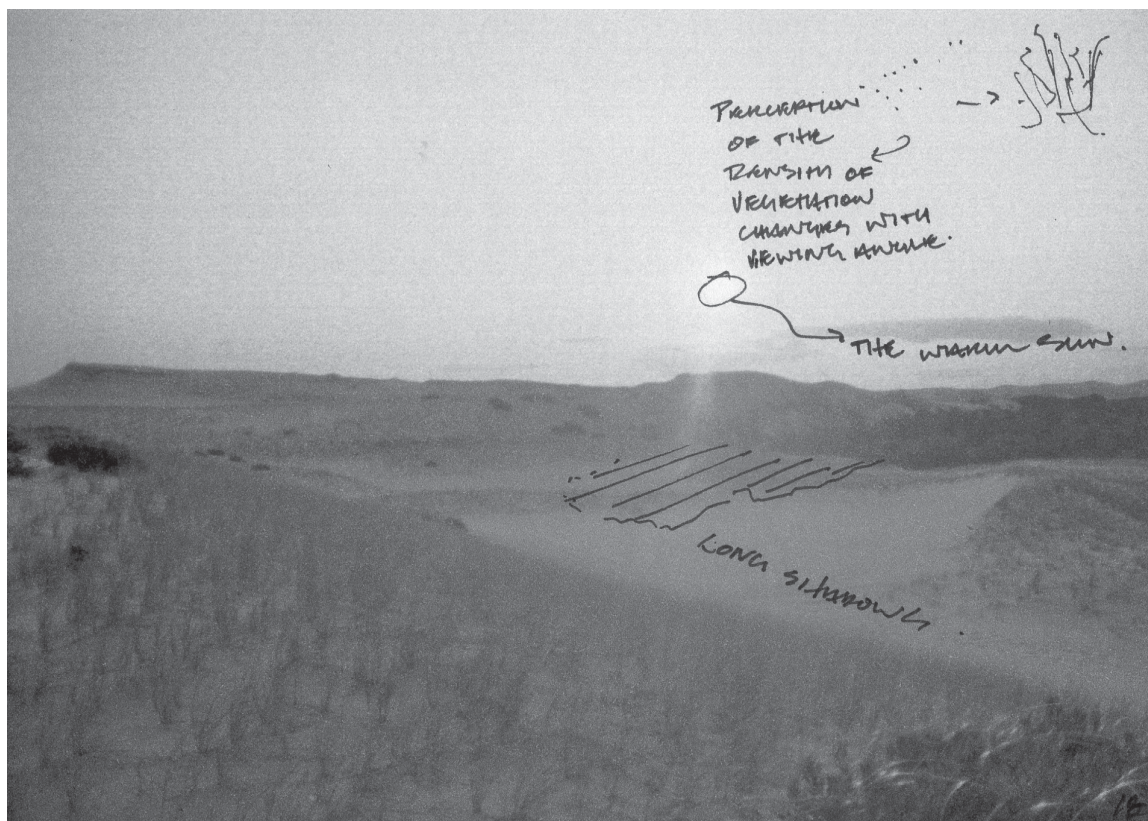 PERCEPTION
OF THE
DENSITY OF
VEGETATION
CHANGES WITH
VIEWING ANGLE.
THE WARM SUN.
LONG SHADOWS.
18